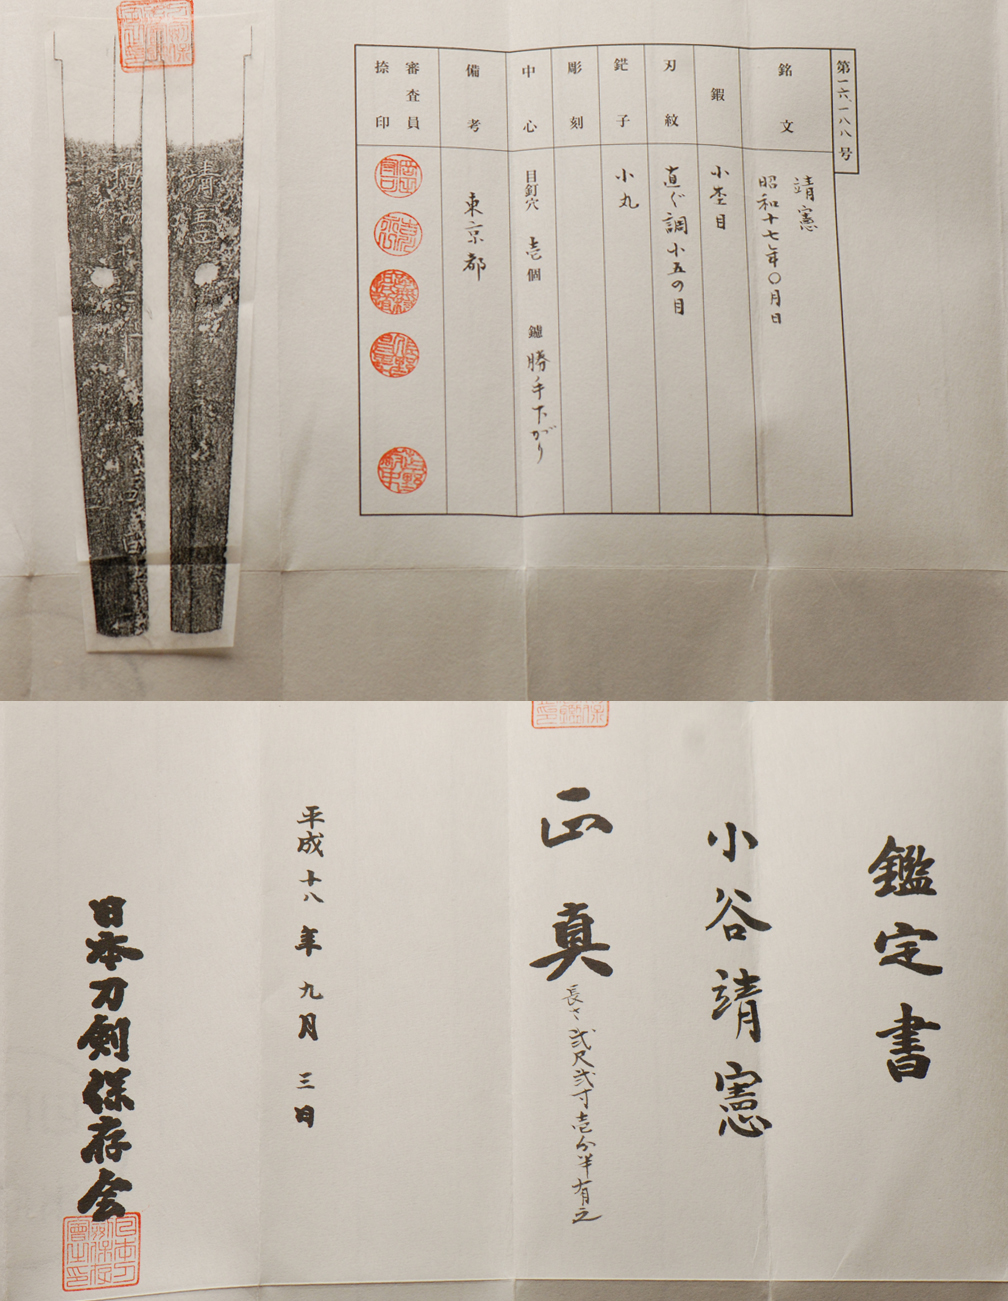 第一六、一八八号
銘文
靖憲
昭和十七年〇月日
鍜
小杢目
刃紋
直ぐ調小五の目
鋩子
小丸
彫刻
中心
目釘穴 壱個 鑢 勝手下がり
備考
東京都
審査員
捺印
靖憲
鑑定書
小谷靖憲
正真
長さ弐尺弐寸壱分半有之
平成十八年九月三日
日本刀剣保存会